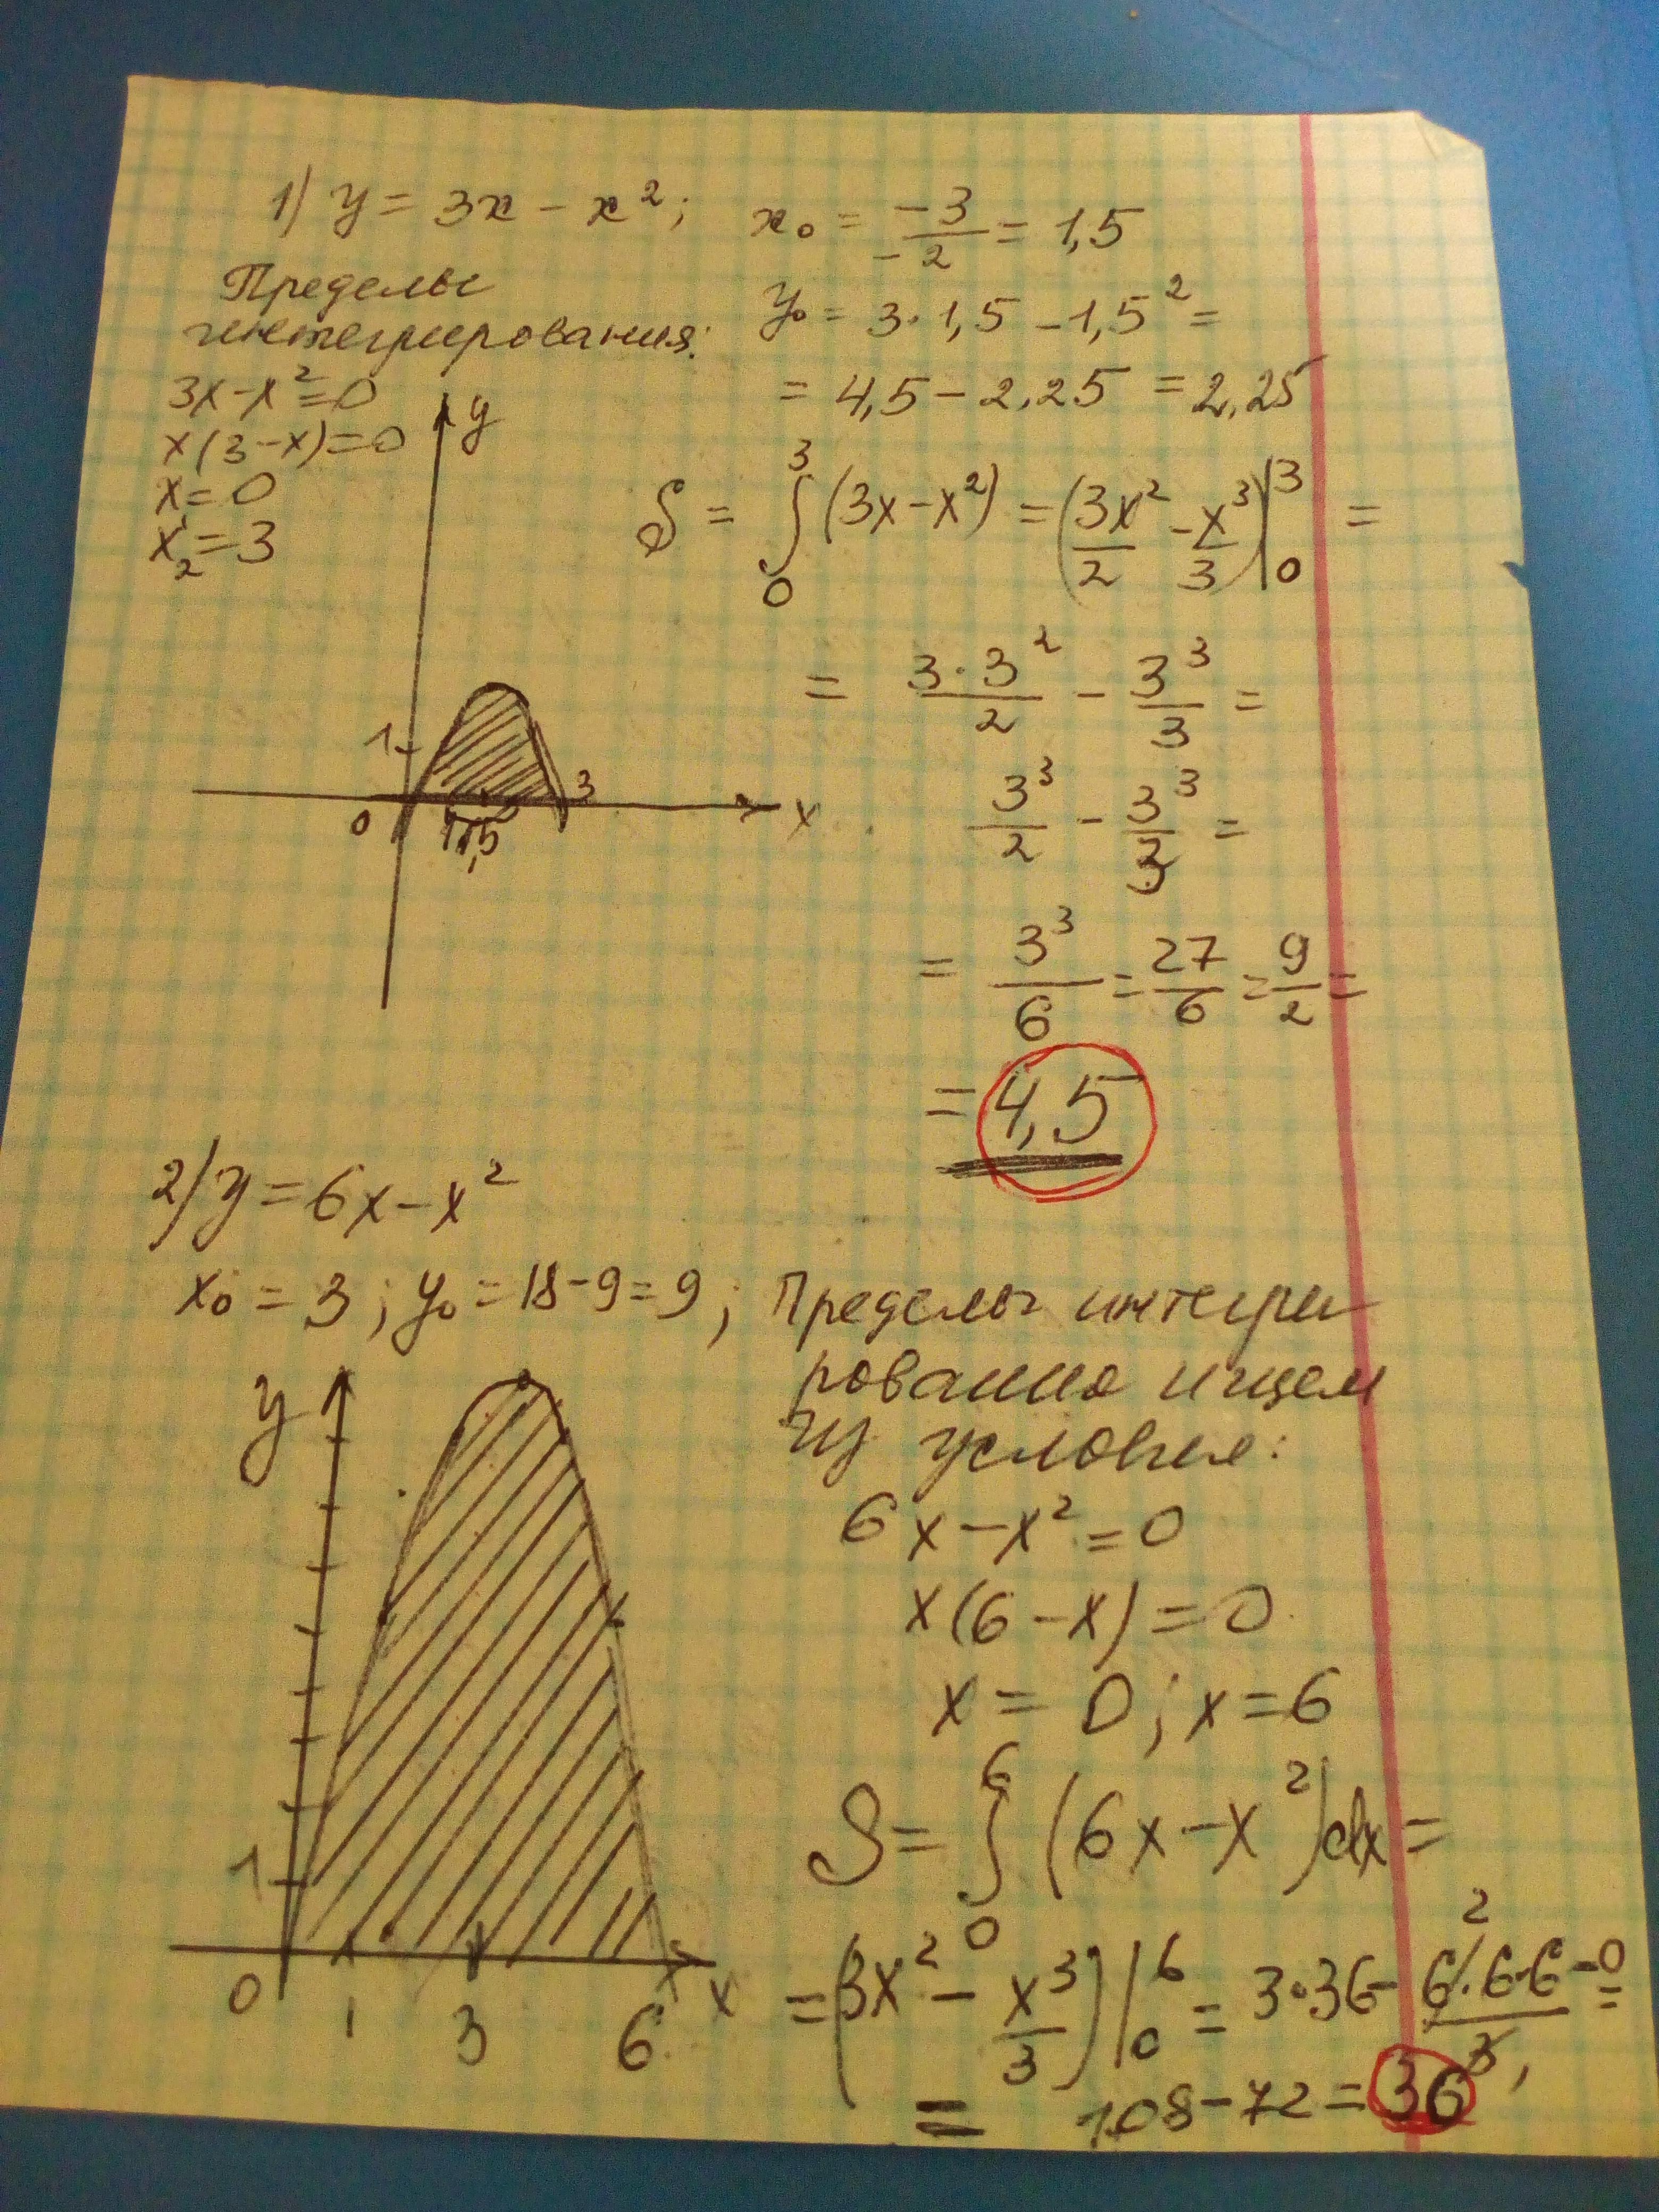 1) y = 3x - x²; x₀ = -3/-2 = 1,5
Пределы
интегрирования:
y₀ = 3·1,5 - 1,5² =
= 4,5 - 2,25 = 2,25
3x-x²=0
x(3-x)=0
x₁=0
x₂=3
y
S = ∫₀³ (3x-x²) = (3x²/2 - x³/3)|₀³ =
= 3·3²/2 - 3³/3 =
3³/2 - 3³/3 =
= 3³/6 = 27/6 = 9/2 =
= 4,5
1
0
1,5
3
x
2) y = 6x - x²
x₀ = 3; y₀ = 18-9=9; Пределы интегри
рования ищем
из условия:
6x - x² = 0
x(6-x) = 0
x = 0; x = 6
S = ∫₀⁶ (6x - x²)dx =
= (3x² - x³/3)|₀⁶ = 3·36 - 6·6·6/3 - 0 =
2
= 108 - 72 = 36
y
1
0
1
3
6
x